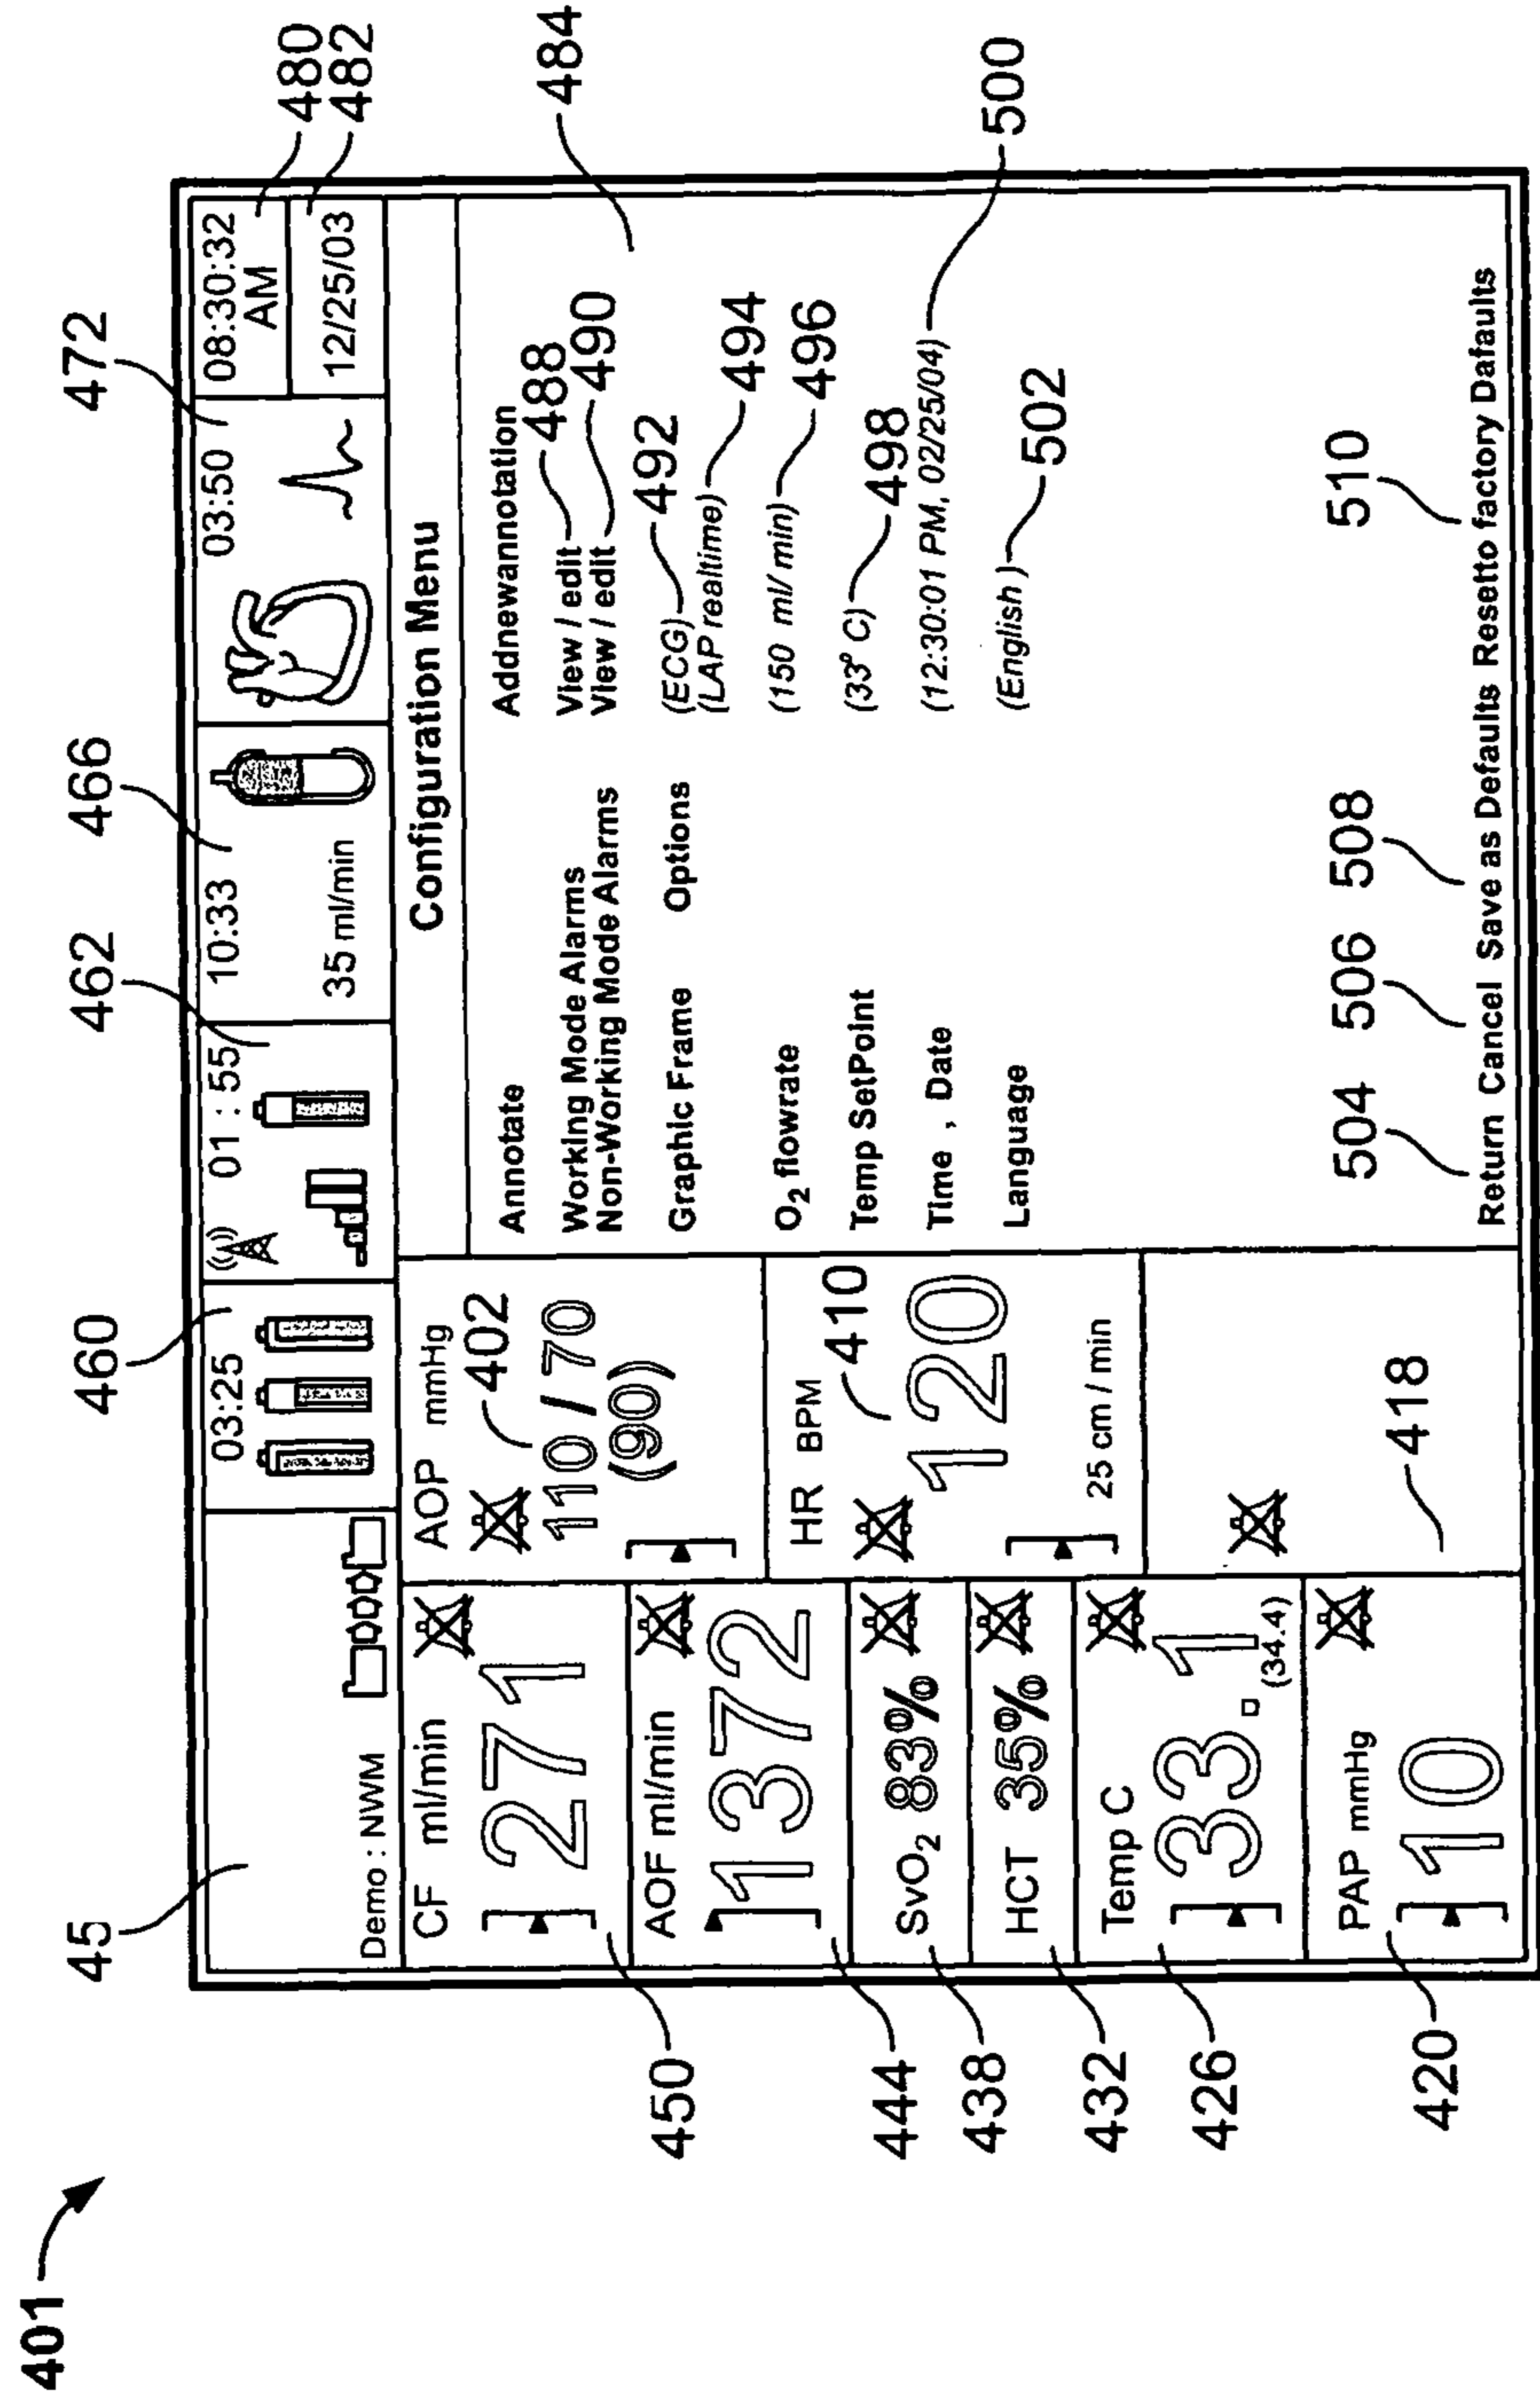 401
45
460
462
466
472
480
482
484
Demo : NWM
03:25
01 : 55
10:33
35 ml/min
03:50
08:30:32
AM
12/25/03
CF ml/min
271
450
AOF ml/min
1372
444
SvO₂ 83%
438
HCT 35%
432
Temp C
33.1
(34.4)
426
PAP mmHg
10
420
AOP mmHg
402
110 / 70
(90)
HR BPM
410
120
25 cm / min
418
Configuration Menu
Annotate Addnewannotation
Working Mode Alarms View / edit 488
Non-Working Mode Alarms View / edit 490
Graphic Frame Options (ECG) 492
(LAP realtime) 494
O₂ flowrate (150 ml/ min) 496
Temp SetPoint (33° C) 498
Time , Date (12:30:01 PM, 02/25/04) 500
Language (English) 502
504 506 508 510
Return Cancel Save as Defaults Resetto factory Dafaults